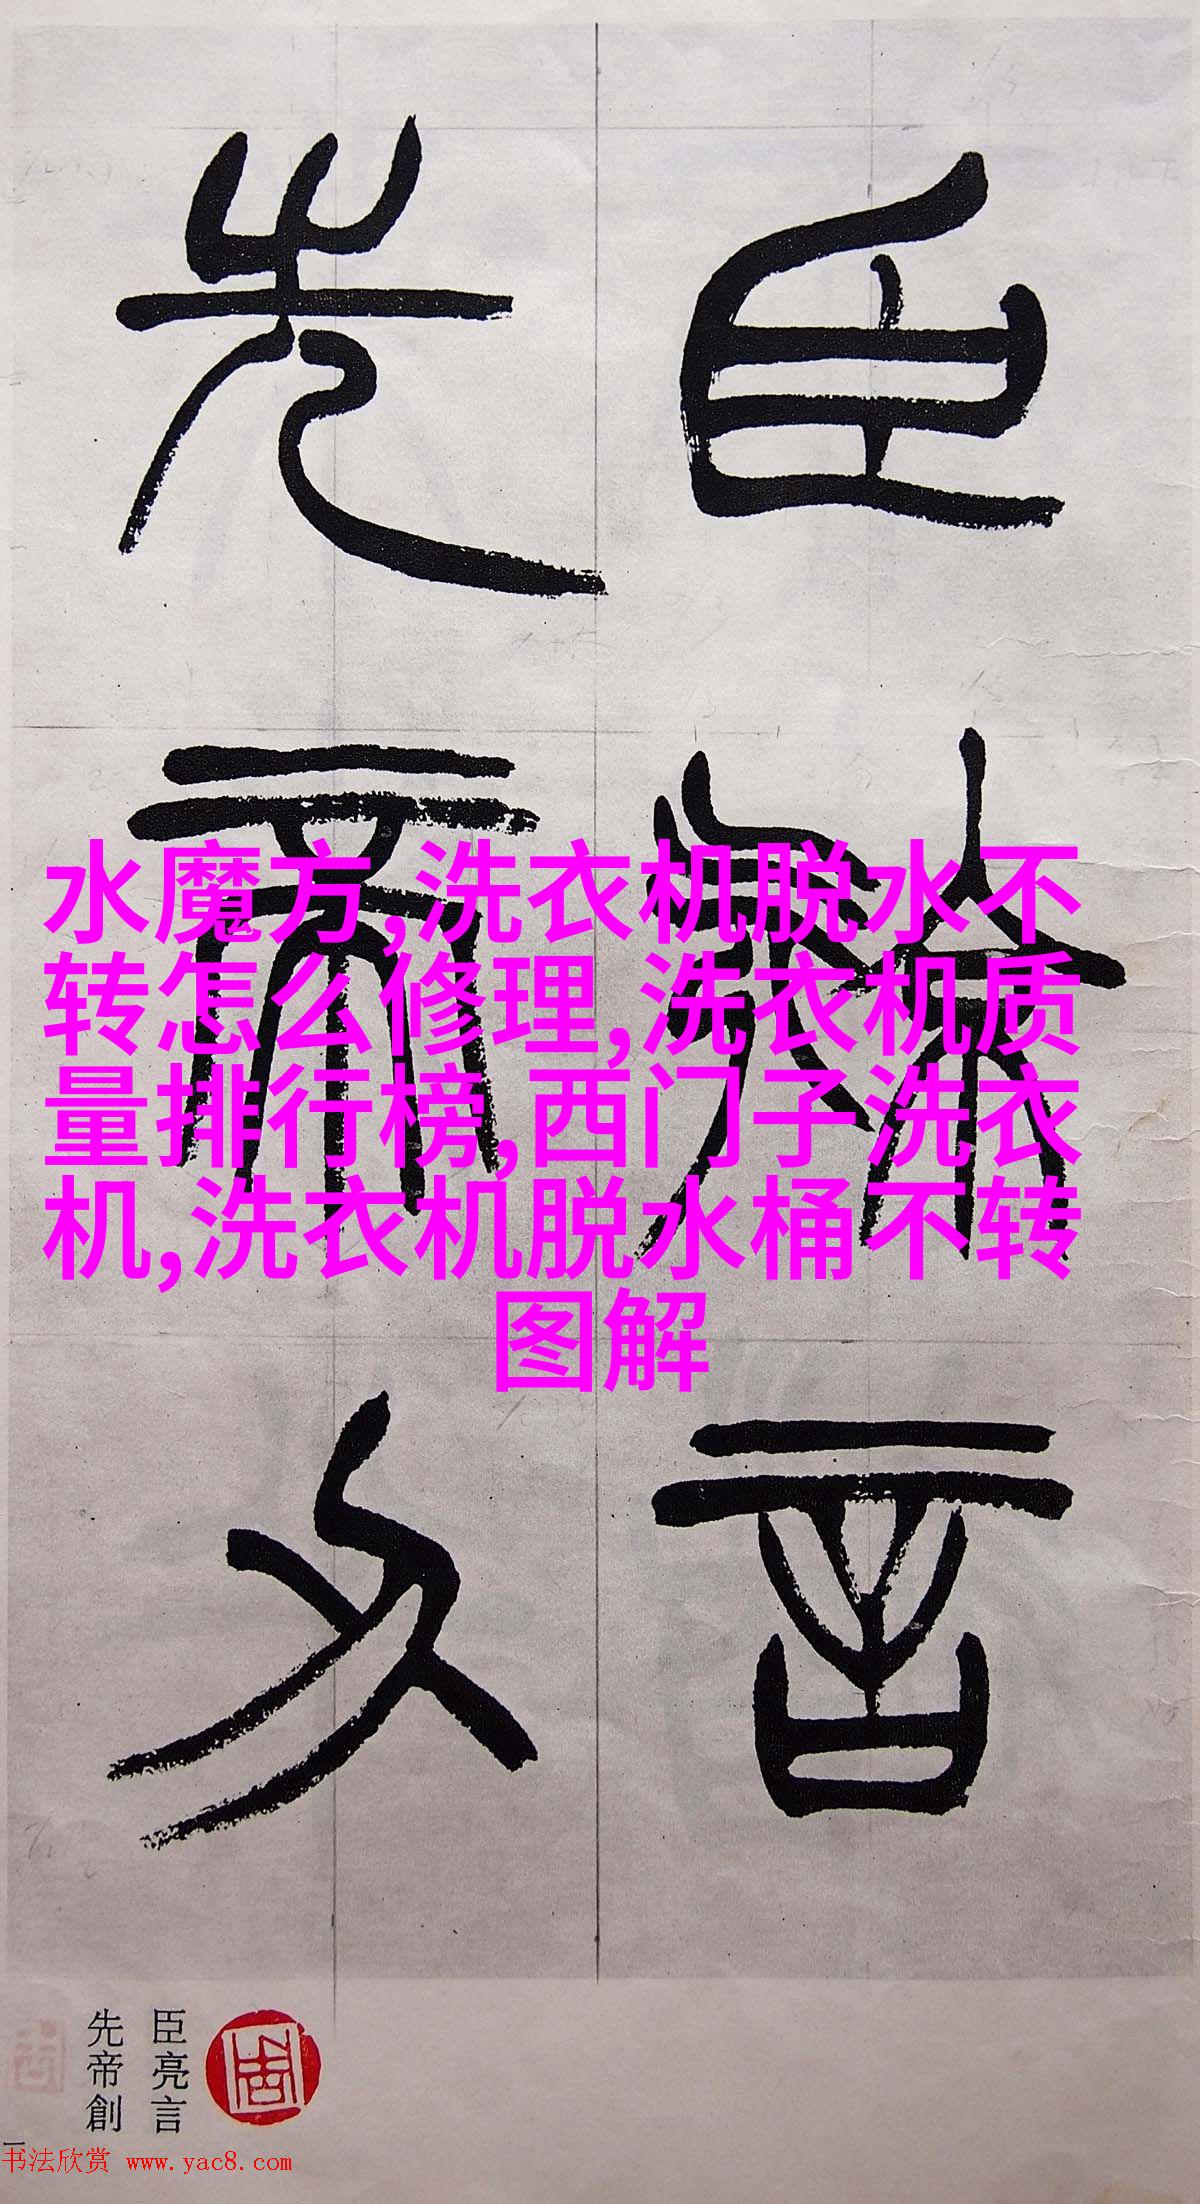 臣亮言
先帝創
水魔方,洗衣机脱水不
转怎么修理,洗衣机质
量排行榜,西门子洗衣
机,洗衣机脱水桶不转
图解
臣亮言
先帝創
一
书法欣赏 www.yac8.com